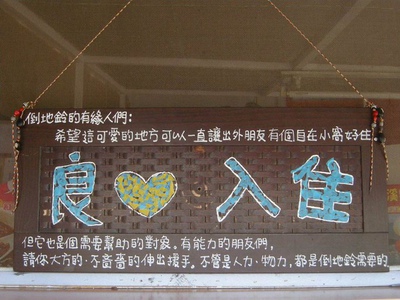 倒地鈴的有緣人們:
希望這可愛的地方可以一直讓出外朋友有個自在小窩好住.
良 入住
但它也是個需要幫助的對象。有能力的朋友們,
請你大方的、不吝嗇的伸出援手。不管是人力、物力,都是倒地鈴需要的